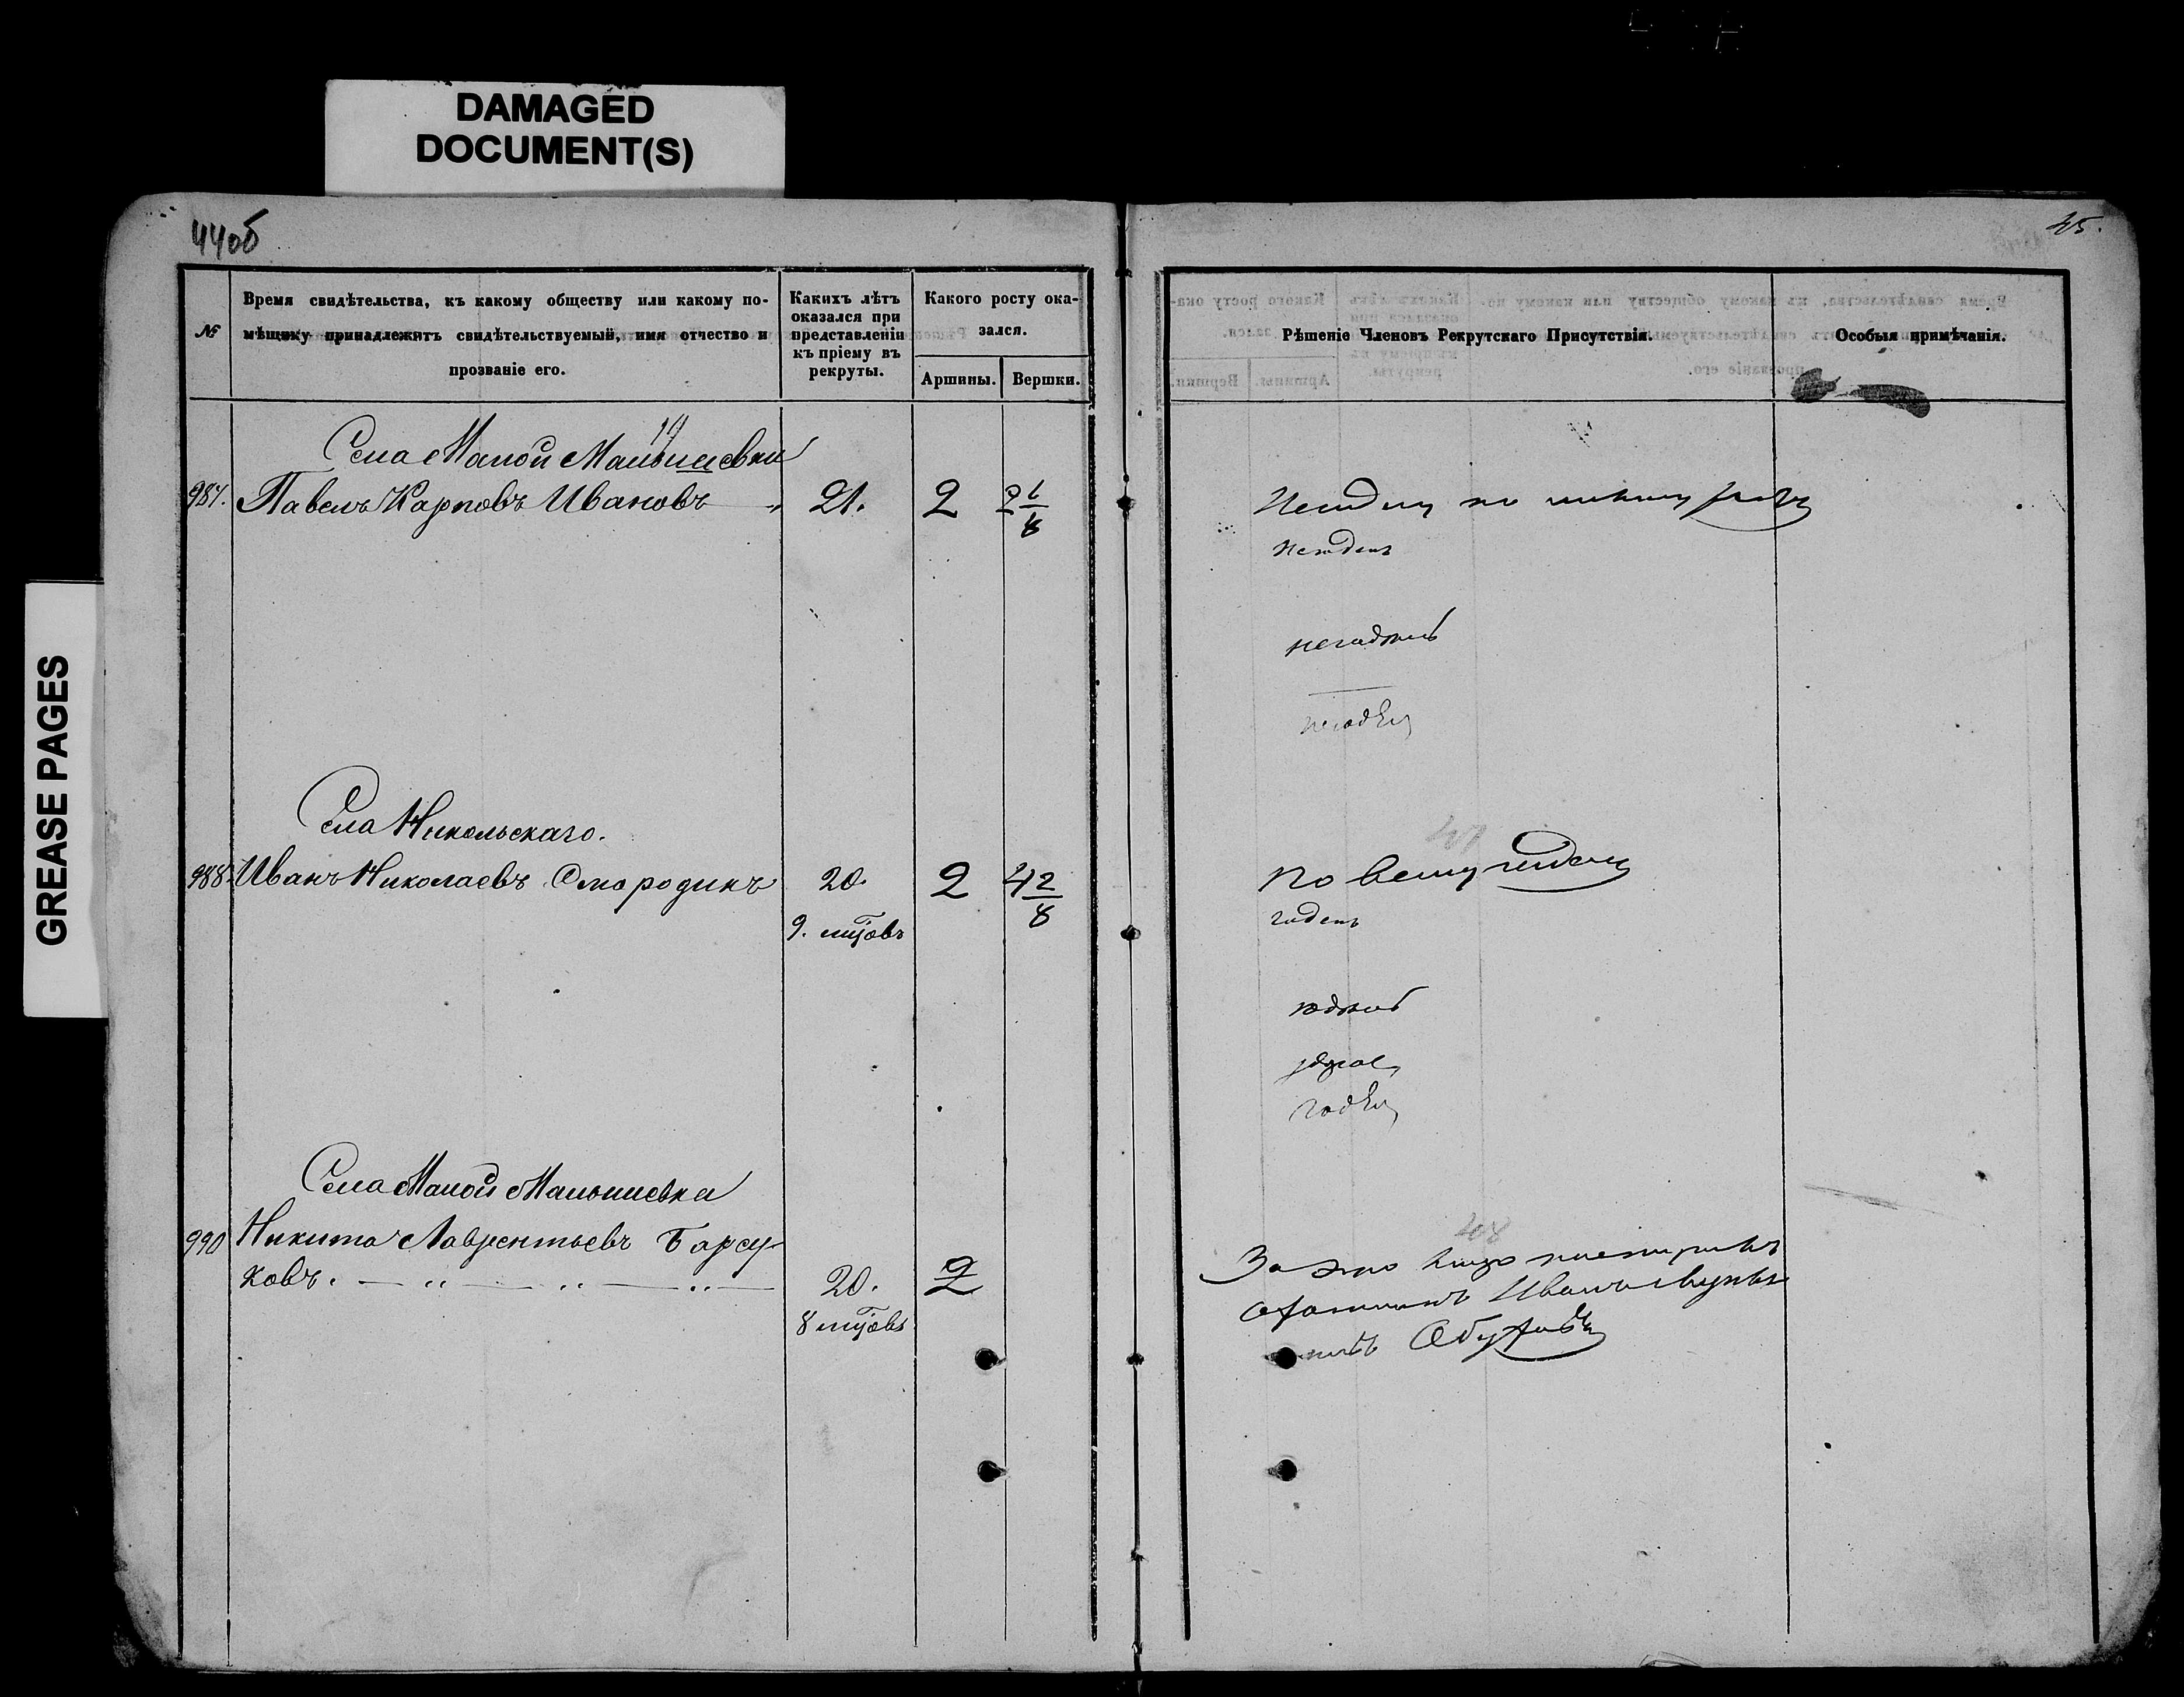 DAMAGED
DOCUMENT(S)
GREASE PAGES
44об
45.
№
Время свидѣтельства, къ какому обществу или какому по-
мѣщику принадлежитъ свидѣтельствуемый, имя отчество и
прозваніе его.
Какихъ лѣтъ
оказался при
представленіи
къ пріему въ
рекруты.
Какого росту ока-
зался.
Аршины.
Вершки.
Рѣшеніе Членовъ Рекрутскаго Присутствія.
Особыя примѣчанія.
Села Малой Малышевки
987. Павелъ Карповъ Ивановъ 21. 2 2 1/8
негоденъ
негоденъ
негоденъ
Села Никольскаго.
988 Иванъ Николаевъ Смородинъ 20. 2 4 2/8
9. мцовъ
407
По всему годенъ
годенъ
годенъ
годенъ
годенъ
Села Малой Малышевки
990 Никита Лаврентьевъ Барсу-
ковъ. 20. 2
8 мцовъ
408
За это лицо
охотникъ Иванъ